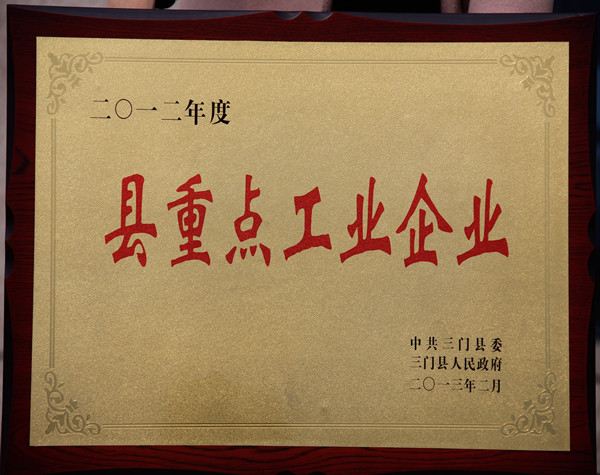 二〇一二年度
县重点工业企业
中共三门县委
三门县人民政府
二〇一三年二月